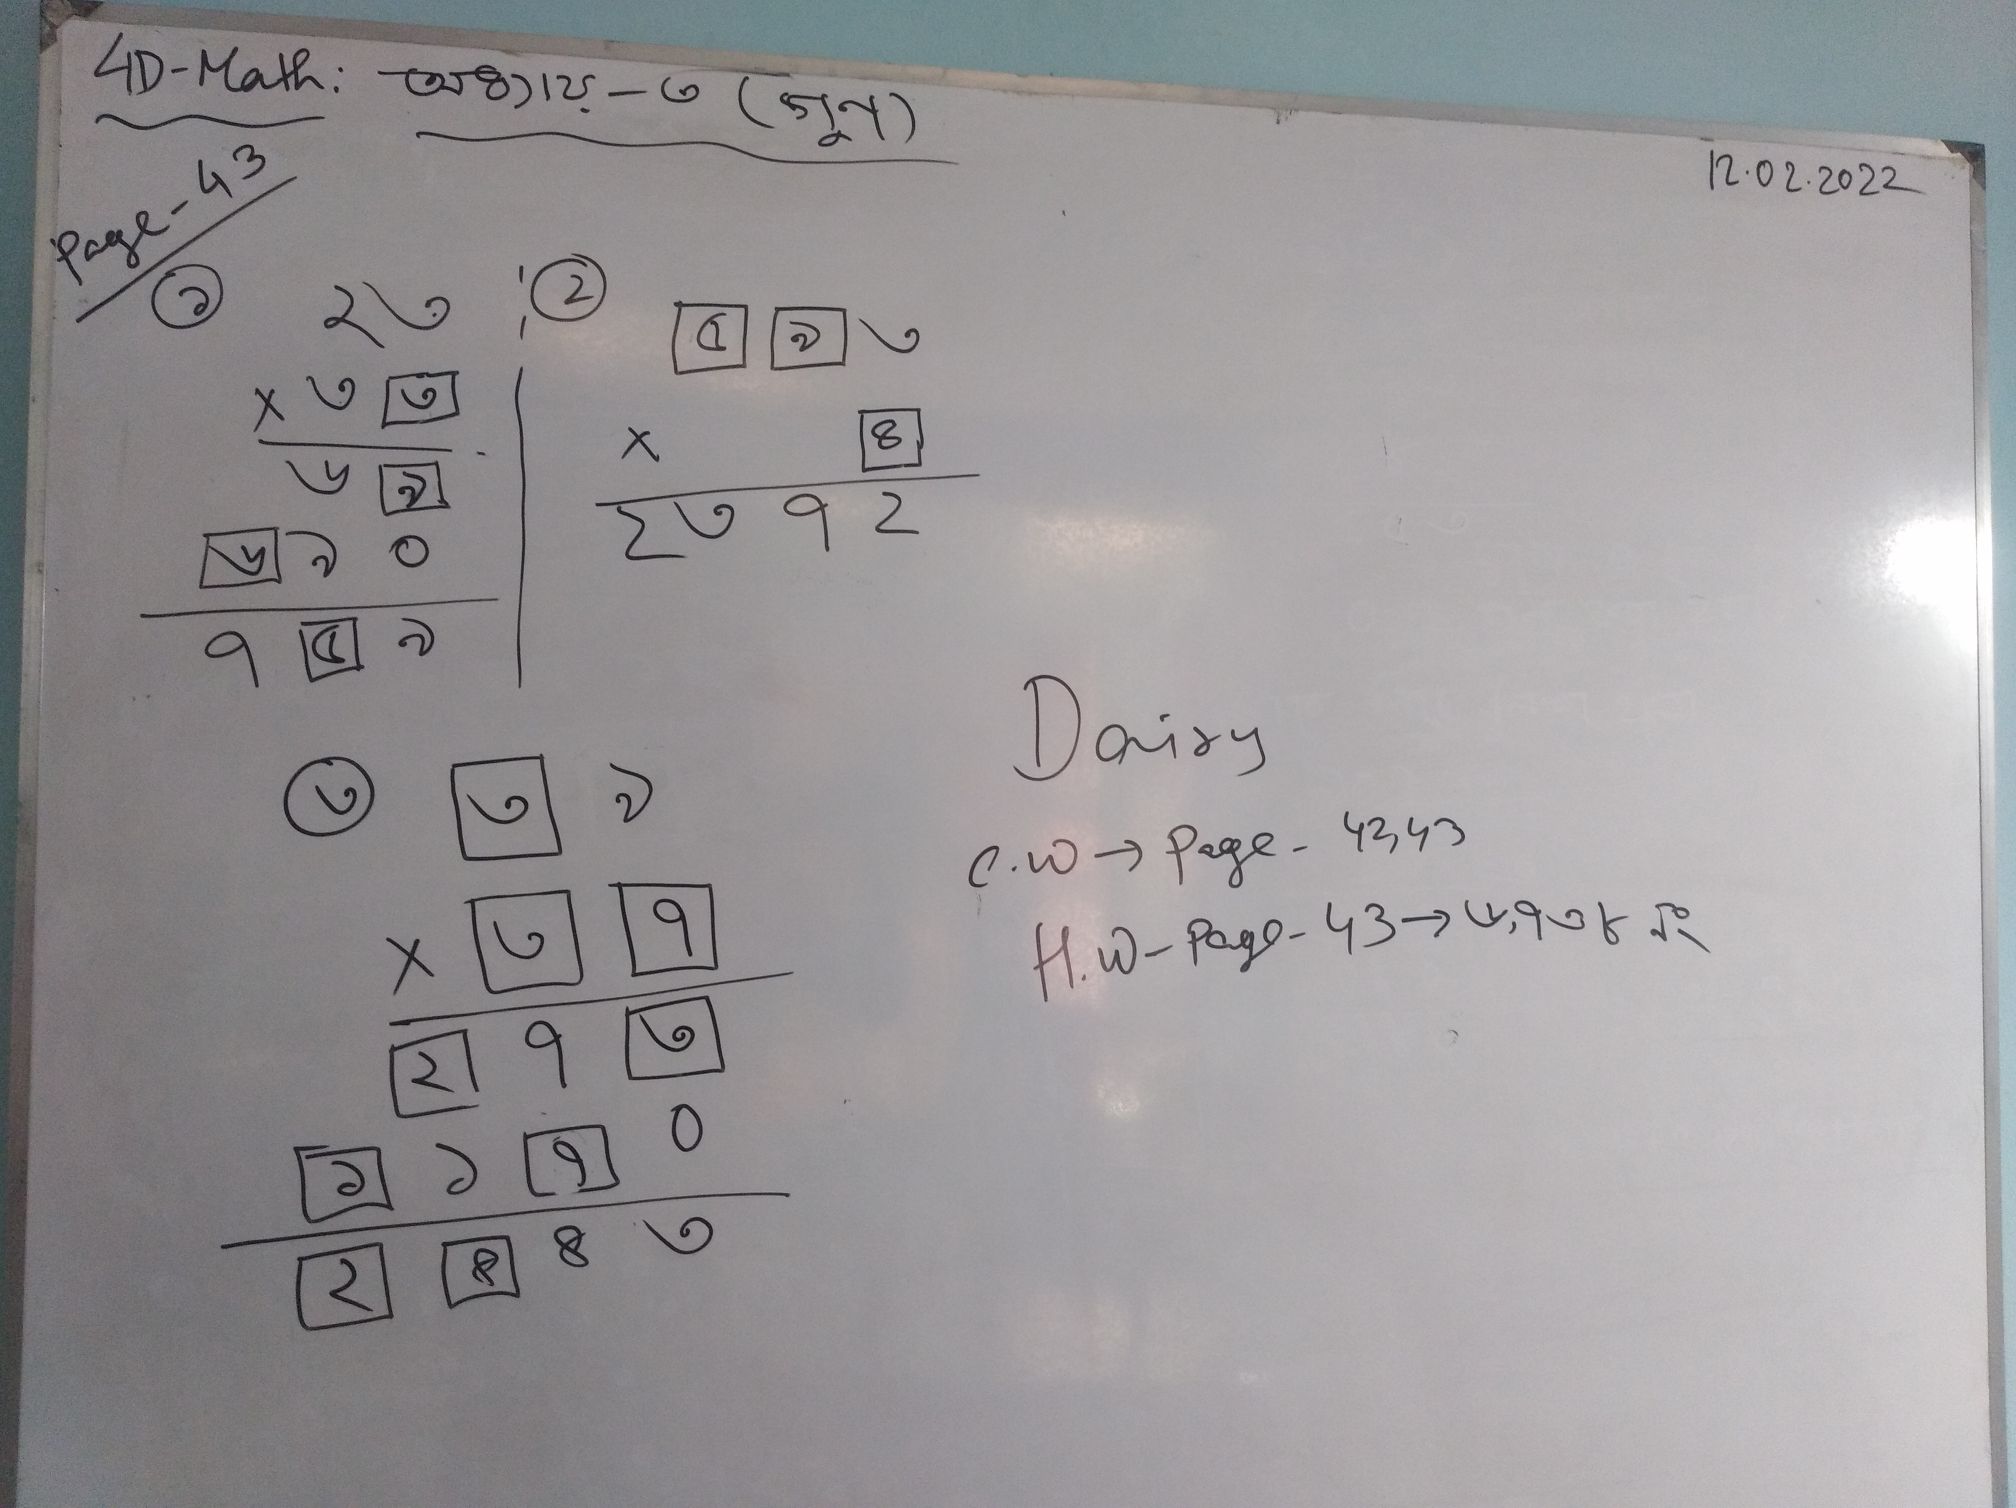 4D-Math: অধ্যায়-৩ (গুণ)
12.02.2022
Page-43
১
২৩
× ৩ ৩
৬ ৯
৬ ৯ ০
৭ ৫ ৯
2
৫ ৯ ৩
× ৪
২ ৩ ৭ ২
৩
৩ ৯
× ৩ ৭
২ ৭ ৩
১ ১ ৭ ০
২ ৪ ৪ ৩
Dairy
C.W → Page - 42,43
H.W - Page - 43 → ৬,৭ও৮ নং